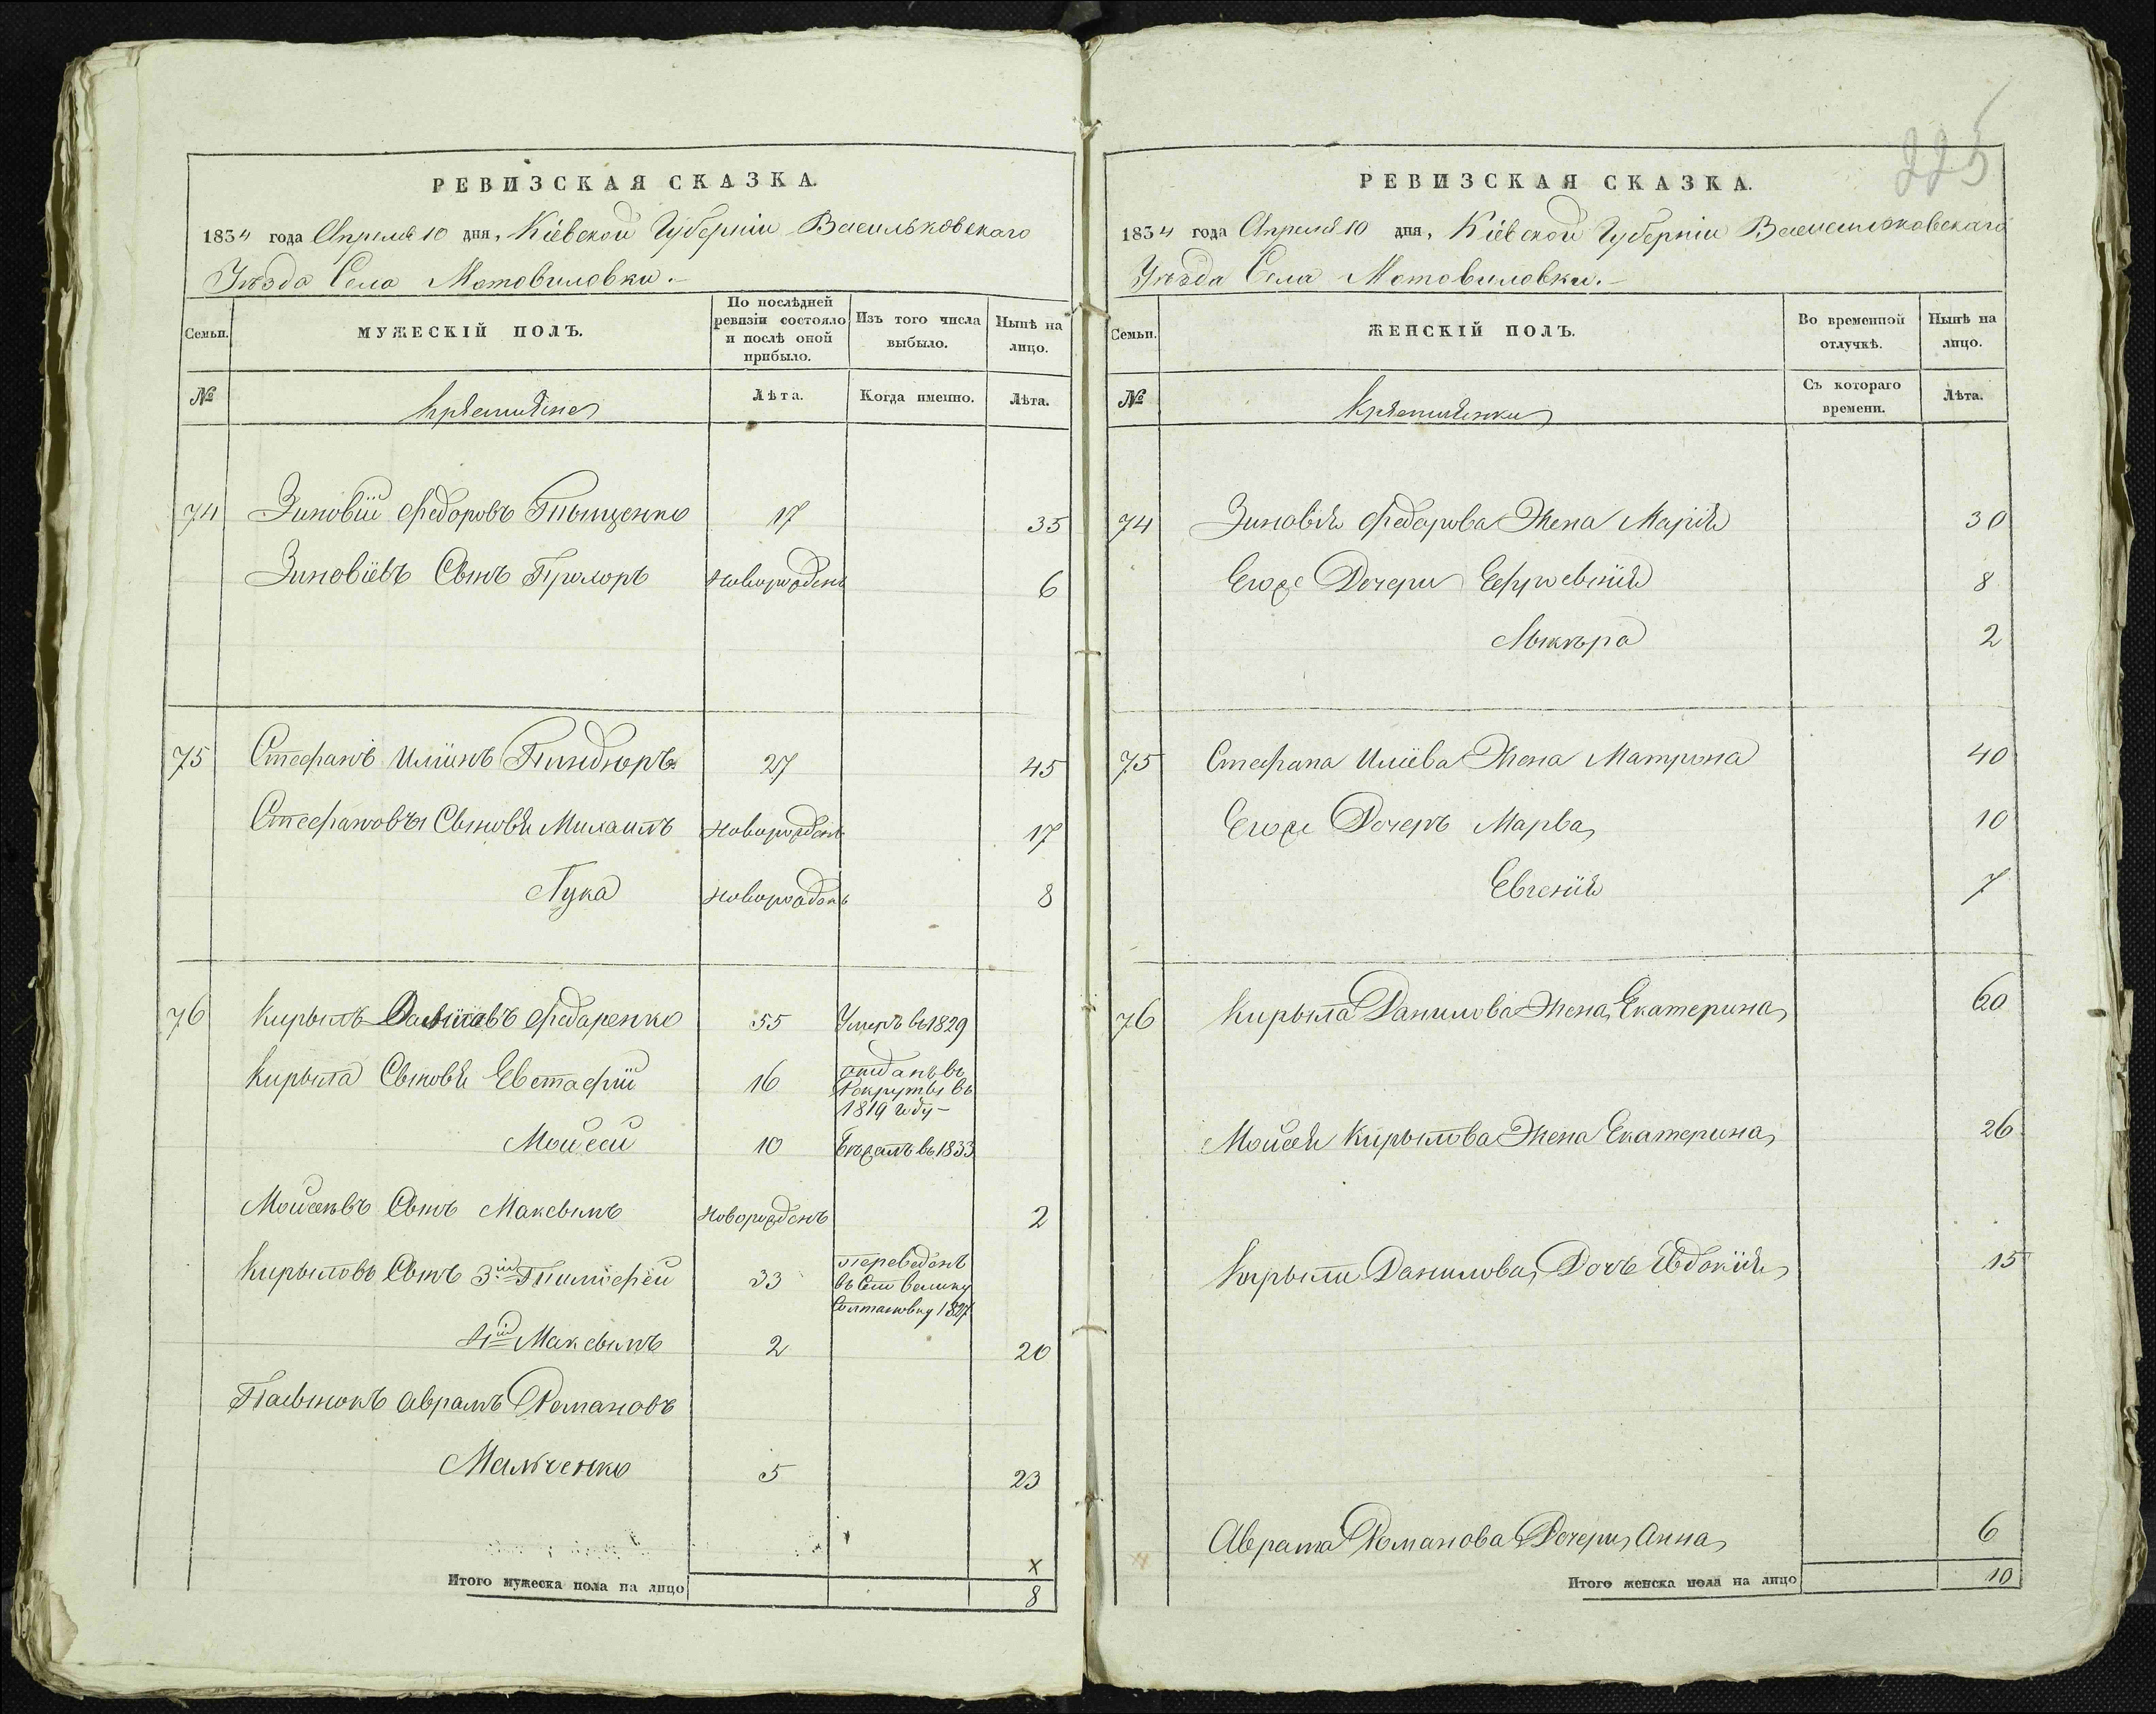 225
РЕВИЗСКАЯ СКАЗКА.
1834 года Апреля 10 дня, Кіевской Губерніи Васильковскаго
Уѣзда Села Мотовиловки.
Семьи.
МУЖЕСКІЙ ПОЛЪ.
По послѣдней ревизіи состояло и послѣ оной прибыло.
Изъ того числа выбыло.
Нынѣ на лицо.
№
Крестьяне
Лѣта.
Когда именно.
Лѣта.
74 Зиновій Федоровъ Тыщенко 17 35
Зиновіевъ Сынъ Прохоръ новорожденъ 6
75 Стефанъ Иліинъ Пиндюръ 27 45
Стефановы Сыновя Михаилъ новорожденъ 17
Лука новорожденъ 8
76 Кирылъ Федаренко 55 Умеръ въ 1829
Кирыла Сыновя Евстафій 16 отданъ въ
Рекруты въ
1819 году
Мойсей 10 Бѣжалъ въ 1833
Мойсеевъ Сынъ Максымъ новорожденъ 2
Кирыловъ Сынъ 3й Тимофей 33 переведенъ
въ Село Велику
Солтановку 1827
4й Максымъ 2 20
Пасынокъ Аврамъ Романовъ
Мальченко 5 23
x
Итого мужеска пола на лицо 8
РЕВИЗСКАЯ СКАЗКА.
1834 года Апреля 10 дня, Кіевской Губерніи Васисильковскаго
Уѣзда Села Мотовиловки.
Семьи.
ЖЕНСКІЙ ПОЛЪ.
Во временной отлучкѣ.
Нынѣ на лицо.
№
Крестьянки
Съ котораго времени.
Лѣта.
74 Зиновія Федорова Жена Марія 30
Егоже Дочери Ефросинія 8
2
75 Стефана Иліева Жена Матрона 40
Егоже Дочеръ Марва 10
Евгенія 7
76 Кирыла Данилова Жена Екатерина 60
Мойсея Кирылова Жена Екатерина 26
Кирыли Данилова Дочь Евдокія 15
Аврама Романова Дочери Анна 6
Итого женска пола на лицо 10